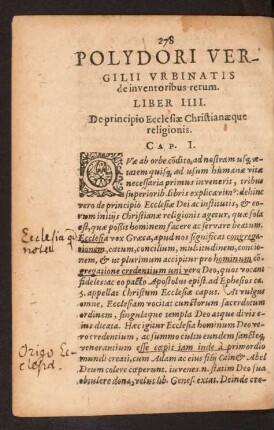 278
POLYDORI VER-
GILII VRBINATIS
de inventoribus rerum.
LIBER IIII.
De principio Ecclesiæ Christianæque
religionis.
CAP. I.
QVæ ab orbe cõdito, ad nostram usq; æ-
tatem quisq; ad usum humanæ vitæ
necessaria primus invenerit, tribus
superiorib. libris explicavim9: dehinc
vero de principio Ecclesiæ Dei ac institutis, & eo-
rum initijs Christianæ religionis agetur, quæ sola
est, quæ possit hominem facere ac servare beatum.
Ecclesia vox Græca, apud nos significat congrega-
tionem, cætum, concilium, multitudinem, contio-
nem, & ut plurimum accipitur pro hominum cõ-
gregatione credentium uni vero Deo, quos vocant
fideles: ac eo pacto Apostolus epist. ad Ephesios ca.
5. appellat Christum Ecclesiæ caput. At vulgus
omne, Ecclesiam vocitat cunctorum sacerdotum
ordinem, singulaque templa Deo atque divis e-
ius dicata. Hæc igitur Ecclesia hominum Deo ve-
ro credentium, ac summo cultu eundem sancteq;
venerantium esse cœpit iam inde à primordio
mundi creati, cum Adam ac eius filij Cain & Abel
Deum colere cœperunt. iuvenes.n. statim Deo sua
obtulere dona, velut lib. Genes. extat. Deinde cre-
Ecclesia
Origo Ec-
clesiæ.